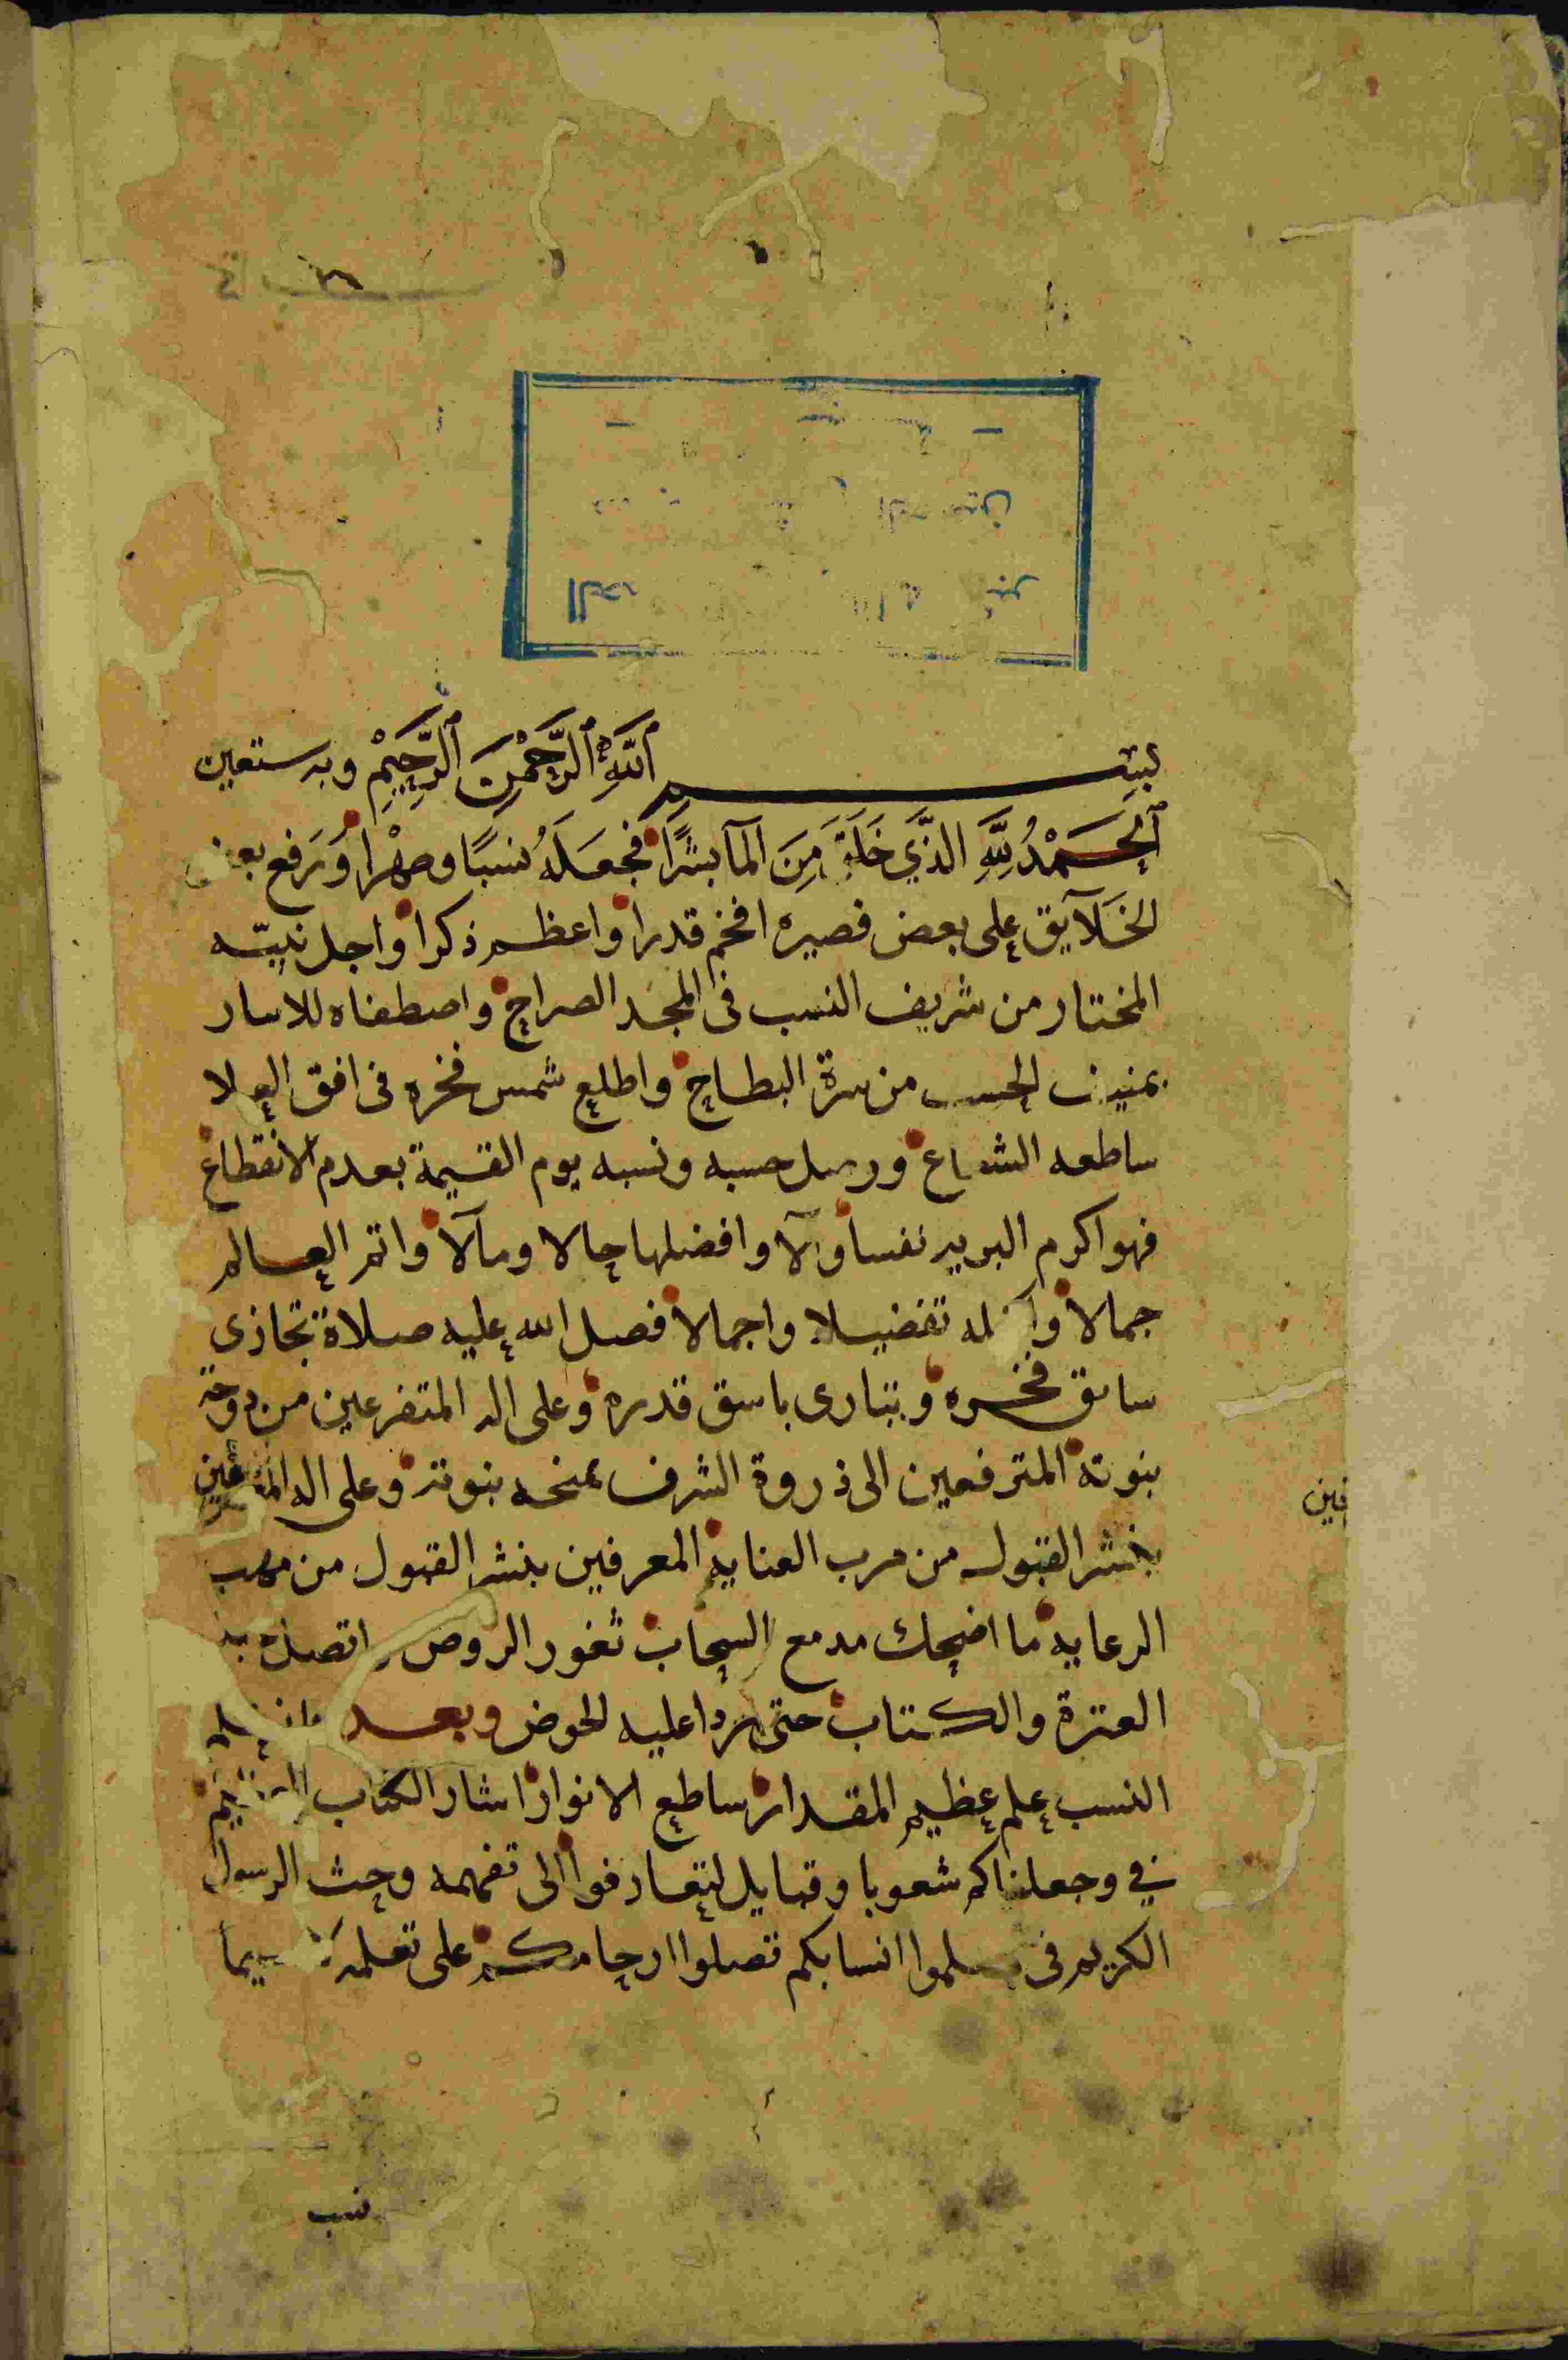 بسم الله الرحمن الرحيم وبه نستعين
الحمد لله الذي خلق من المآ بشرا فجعله نسبا وصهرا ورفع بعض
الخلآيق على بعض فصيره افخم قدرا واعظم ذكرا واجل نبيّه
المختار من شريف النسب فى المجد الصراح واصطفاه
بمنيف الحسب من سرة البطاح واطلع شمس فخره فى افق العلا
ساطعه الشعاع حسبه ونسبه يوم القيمة بعدم الانقطاع
فهو اكرم البريه نفسا وآلا وافضلها حالا ومآلا واتم العالم
جمالا تفضيلا واجمالا فصل الله عليه صلاة تحاذى
فخره وتبارى باسق قدره وعلى اله المتفرعين من دوحة
بنوته المترفعين الى ذروة الشرف بمنحه بنوته وعلى اله
القبول من العنايه المعرفين بنشر القبول من مهب
الرعايه ما اضحك مدمع السحاب ثغور الروض
العترة والكتاب حتى يردا عليه الحوض وبعد
النسب علم عظيم المقدار ساطع الانوار اشار الكتاب
في وجعلناكم شعوبا وقبايل لتعارفوا الى تفهمه وحث الرسول
الكريم فى انسابكم تصلوا ارحامكم على تعلمه
نسب